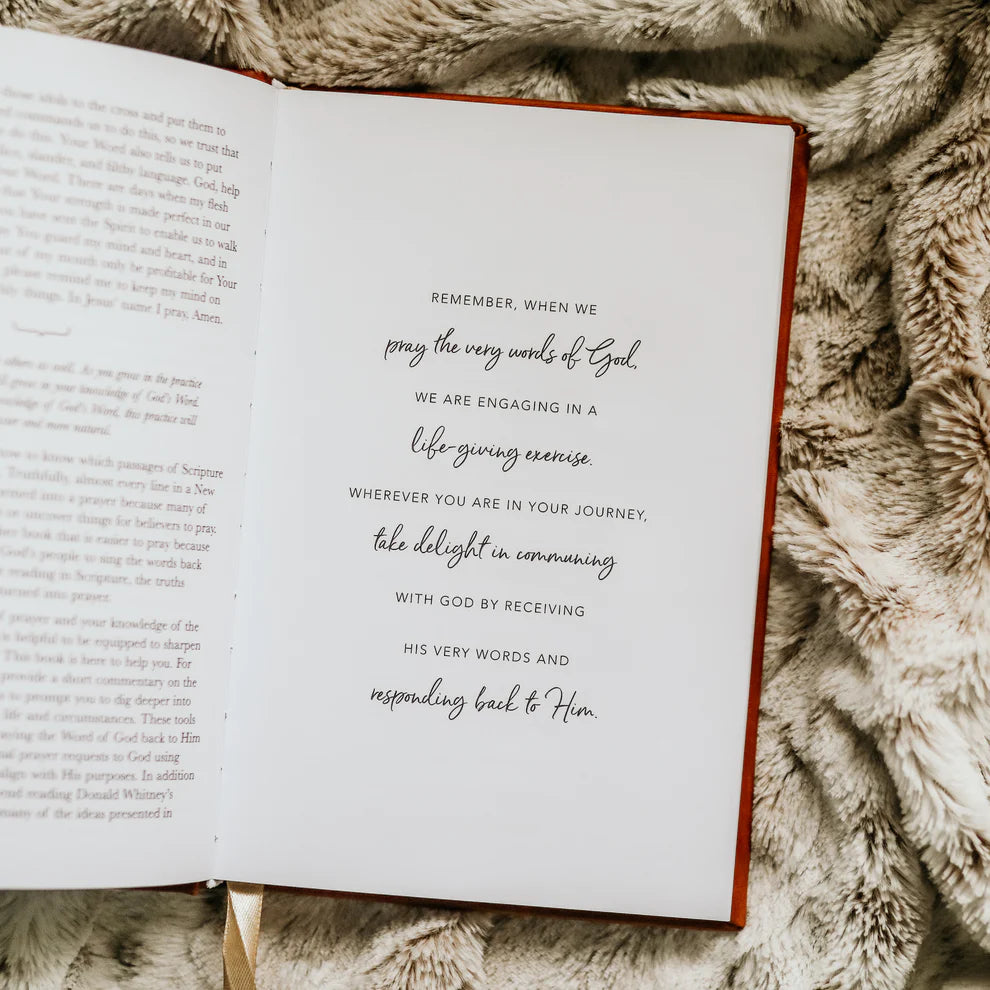 those idols to the cross and put them to
commands us to do this, so we trust that
do this. Your Word also tells us to put
slander, and filthy language. God, help
Word. There are days when my flesh
that Your strength is made perfect in our
have sent the Spirit to enable us to walk
You guard my mind and heart, and in
of my mouth only be profitable for Your
please remind me to keep my mind on
things. In Jesus' name I pray, Amen.
others as well. As you grow in the practice
grow in your knowledge of God's Word
knowledge of God's Word, this practice will
and more natural.
to know which passages of Scripture
Truthfully, almost every line in a New
turned into a prayer because many of
or uncover things for believers to pray.
book that is easier to pray because
God's people to sing the words back
reading in Scripture, the truths
turned into prayer.
prayer and your knowledge of the
is helpful to be equipped to sharpen
This book is here to help you. For
provide a short commentary on the
to prompt you to dig deeper into
life and circumstances. These tools
the Word of God back to Him
prayer requests to God using
align with His purposes. In addition
reading Donald Whitney's
many of the ideas presented in
REMEMBER, WHEN WE
pray the very words of God,
WE ARE ENGAGING IN A
life-giving exercise.
WHEREVER YOU ARE IN YOUR JOURNEY,
take delight in communing
WITH GOD BY RECEIVING
HIS VERY WORDS AND
responding back to Him.